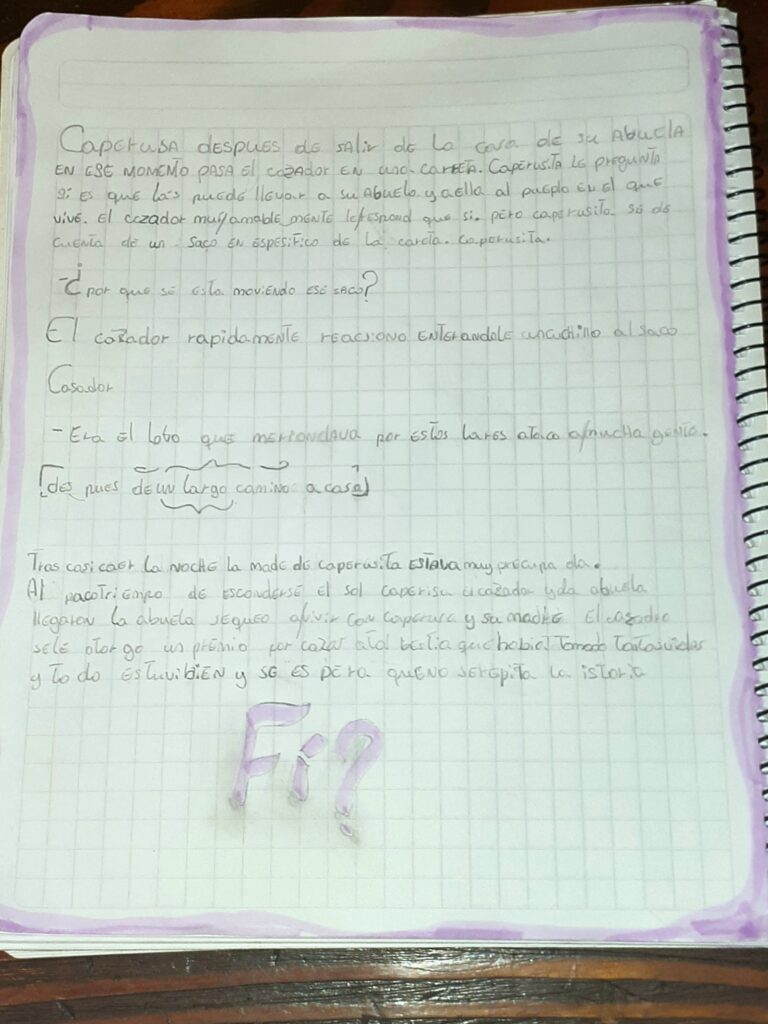 Caperusa despues de salir de la casa de su Abuela
en ese momento pasa el cazador en una carreta. Caperusita le pregunta
si es que las puede llevar a su Abuela y a ella al pueplo en el que
vive. El cazador muy amable mente le respond que si. pero caperusita se de
cuenta de un saco en espesifico de la careta. caperusita.
-¿por que se esta moviendo ese saco?
El cazador rapidamente reaciono enterandole un cuchino al saco
Casador
- Era el lobo que merrondava por estos lares ataco a mucha gente.
[des pues de un largo camino a casa]
Tras casi caer la noche la made de caperusita estava muy precupa da.
Al pocotriempo de esconderse el sol caperisu el cazador y da abuela
llegaron la abuela sequeo a vivir con caperusa y su madre El cazador
sele otor go un premio por cazar atal bestia que habia tomado tantas vidas
y to do estuvibien y se es pera que no serepita la istoria
Fi?